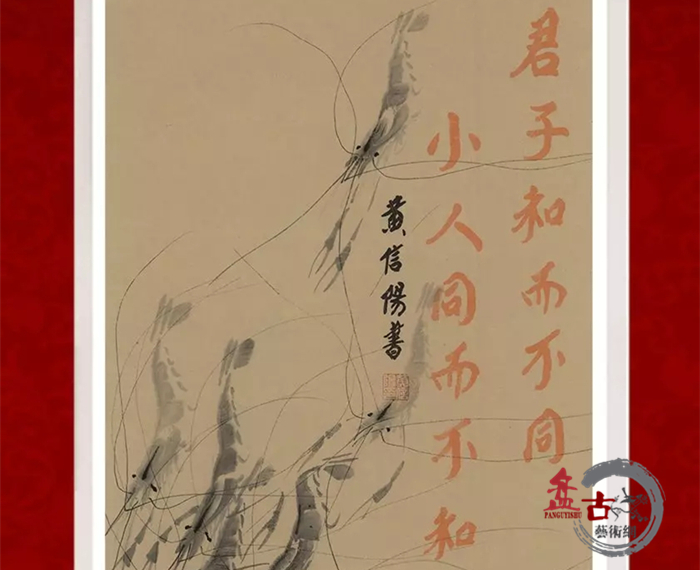 君子和而不同
小人同而不和
黄信陽書
盘古
PANGUYISHU
藝術網